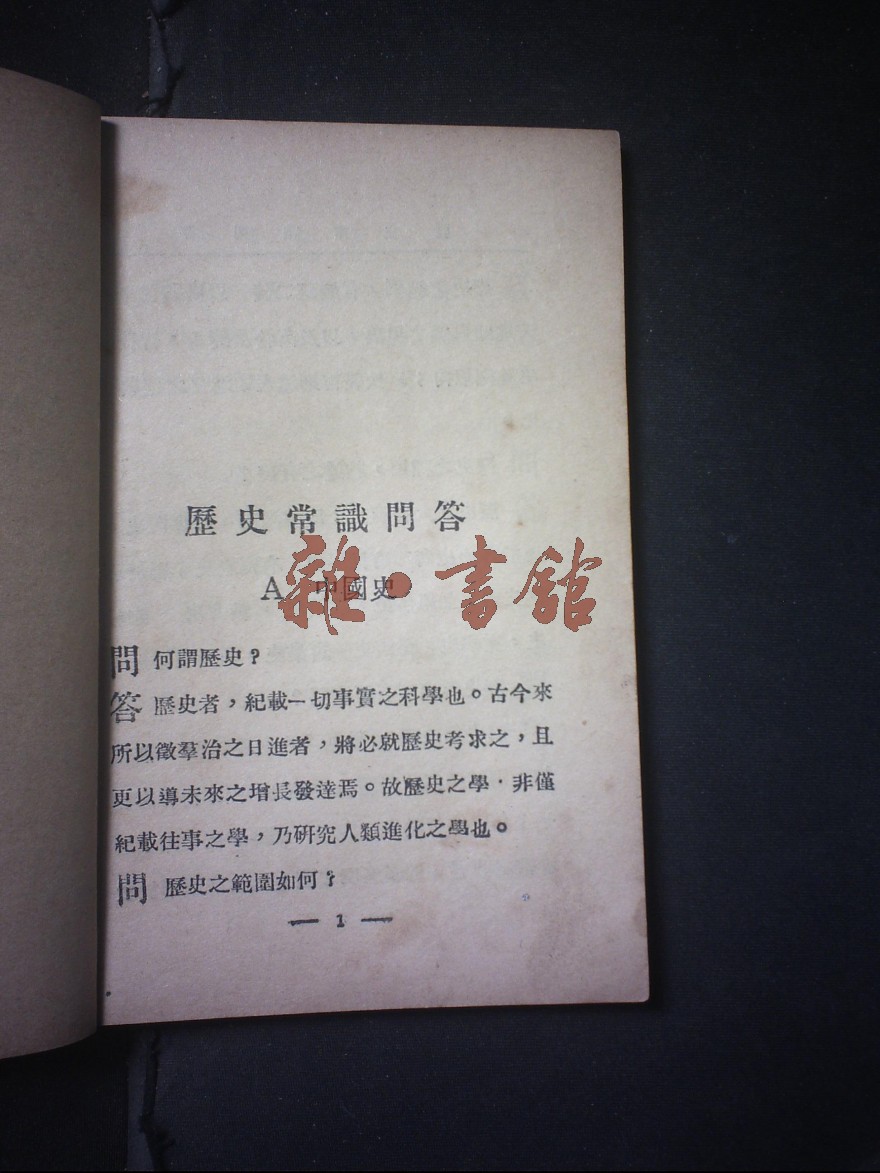 歷史常識問答
A 中國史
雜·書館
問 何謂歷史？
答 歷史者，紀載一切事實之科學也。古今來
所以徵羣治之日進者，將必就歷史考求之，且
更以導未來之增長發達焉。故歷史之學·非僅
紀載往事之學，乃研究人類進化之學也。
問 歷史之範圍如何？
— 1 —